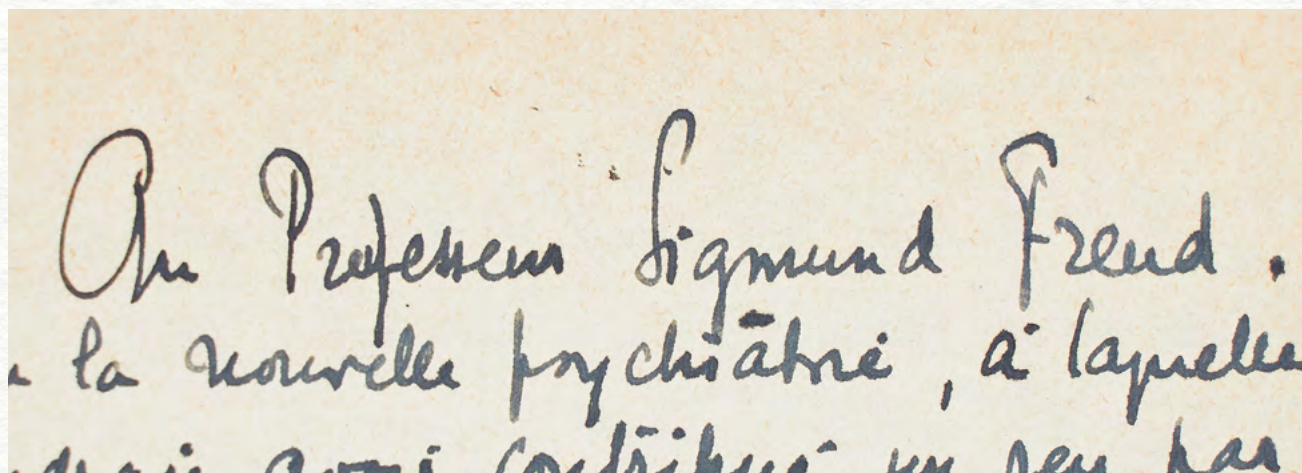 Au Professeur Sigmund Freud.
la nouvelle psychiâtrie, à laquelle
aussi contribué un peu par